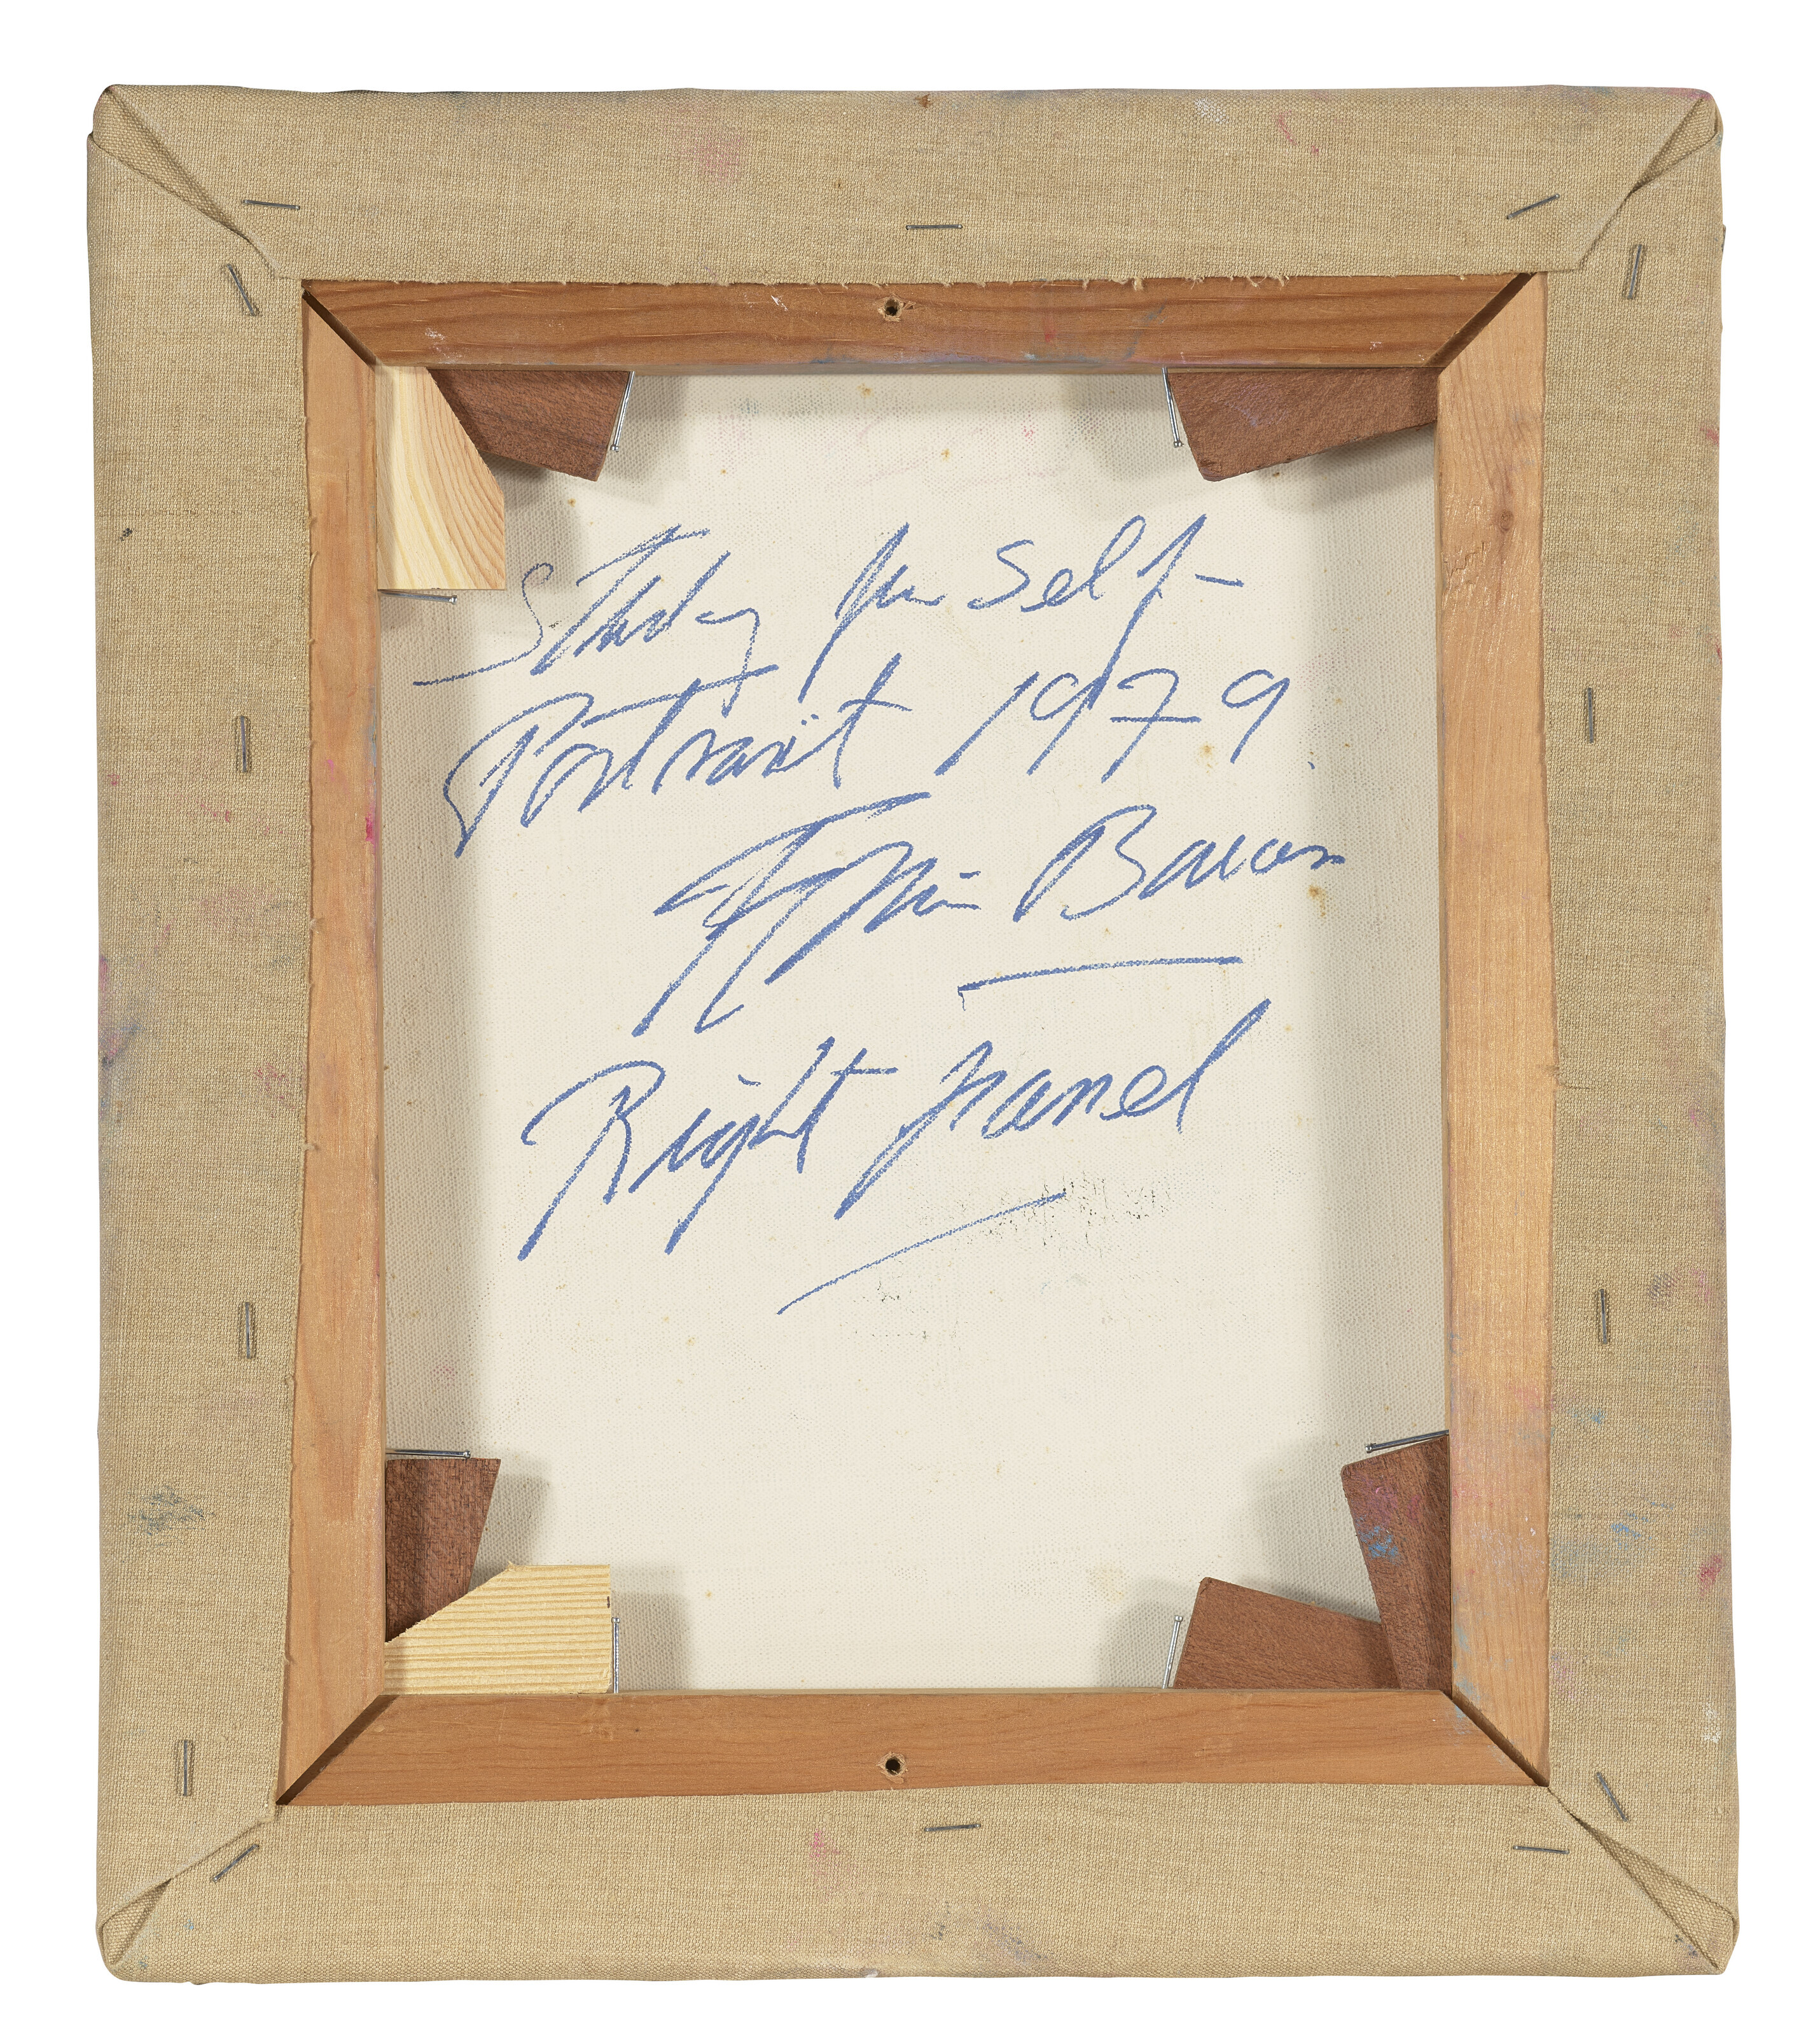 Study for Self-
Portrait 1979
Francis Bacon
Right panel